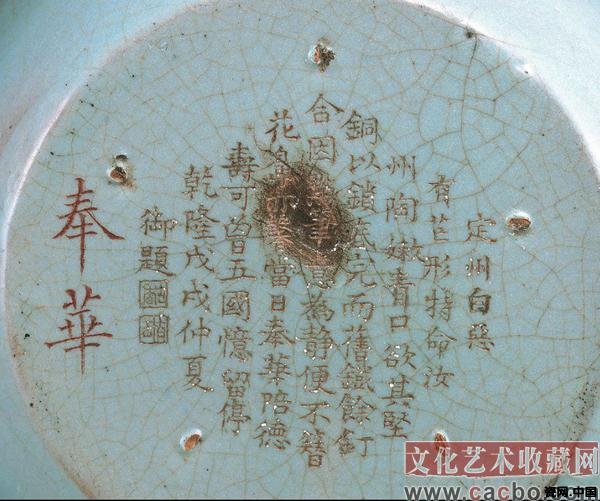 定州白惡
有芒形特命汝
州陶嫩青口欲其堅
銅以鎖底完而舊鐵餘釘
合因筆意為静便不簪
花亦當日奉華陪德
壽可曾五國憶留停
乾隆戊戌仲夏
御題
奉華
文化艺术收藏网
www.cacbo
瓷网.中国